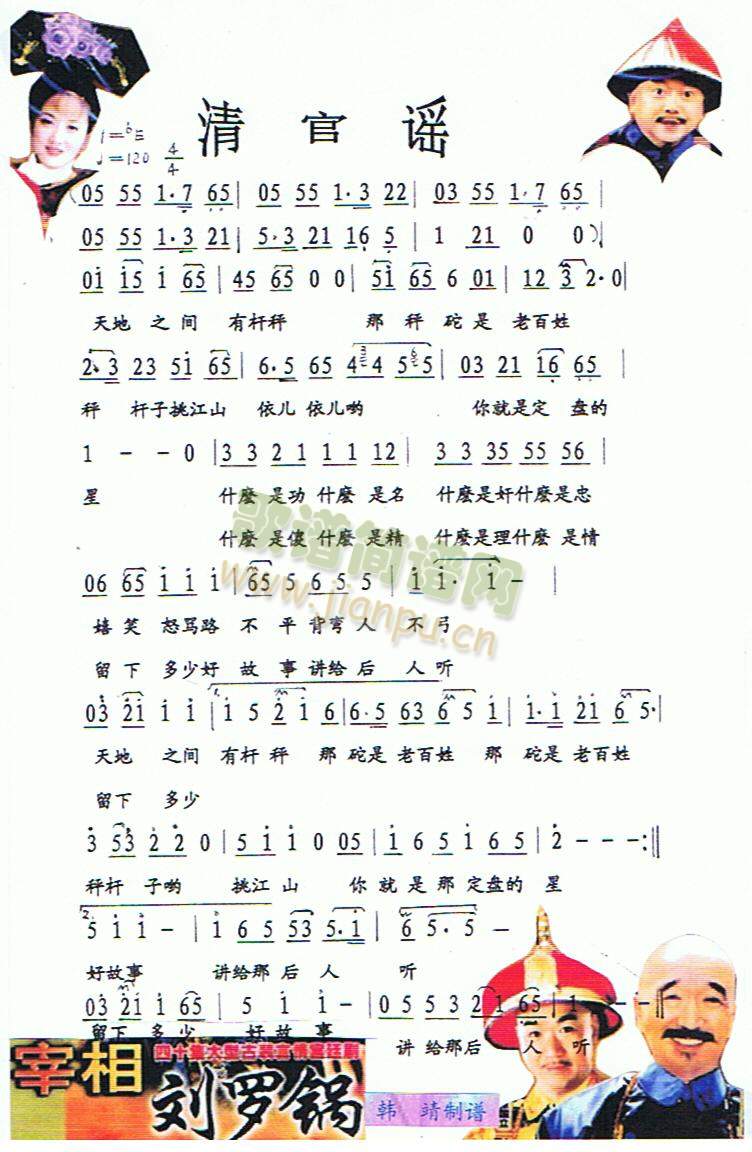 清官谣
1=ᵇE
♩=120 4/4
(05 55 1·7 65| 05 55 1·3 22| 03 55 1·7 65|
05 55 1·3 21| 5·3 21 16 5| 1 21 0 0)|
01 15 1 65| 45 65 0 0| 51 65 6 01| 12 3 2·0|
天地 之间 有杆秤 那秤 砣是 老百姓
2·3 23 51 65| 6·5 65 4³4 5⁶5| 03 21 16 65|
秤 杆子挑江山 依儿 依儿哟 你就是定 盘的
1 - - 0|3 3 2 1 1 1 12| 3 3 35 55 56|
星 什麽 是功 什麽 是名 什麽是奸什麽是忠
什麽 是傻 什麽 是精 什麽是理什麽 是情
歌谱简谱网
www.jianpu.cn
06 65 1 1 1|65 5 6 5 5| 1 1· 1 -|
嬉 笑 怒骂路 不 平 背弯 人 不 弓
留 下 多少好 故 事 讲给 后 人 听
1.
03 21 1 1|1 5 2 1 6|6·5 63 6 5 1| 1·1 21 6 5·|
天地 之间 有杆 秤 那 砣是 老百姓 那 砣是老百姓
留下 多少
3 53 2 2 0| 5 1 1 0 05| 1 6 5 1 6 5|2 - - -:‖
秤杆 子哟 挑江 山 你 就 是 那 定盘的 星
2.
5 1 1 -| 1 6 5 53 5·1| 6 5·5 -
好故事 讲给那 后 人 听
03 21 1 65| 5 1 1 -|0 5 5 3 2 1 65|1 - - -‖
留 下 多 少 好 故 事 讲 给那后 人 听
宰相
四十集大型古装言情宫廷剧
刘罗锅
韩 靖制谱